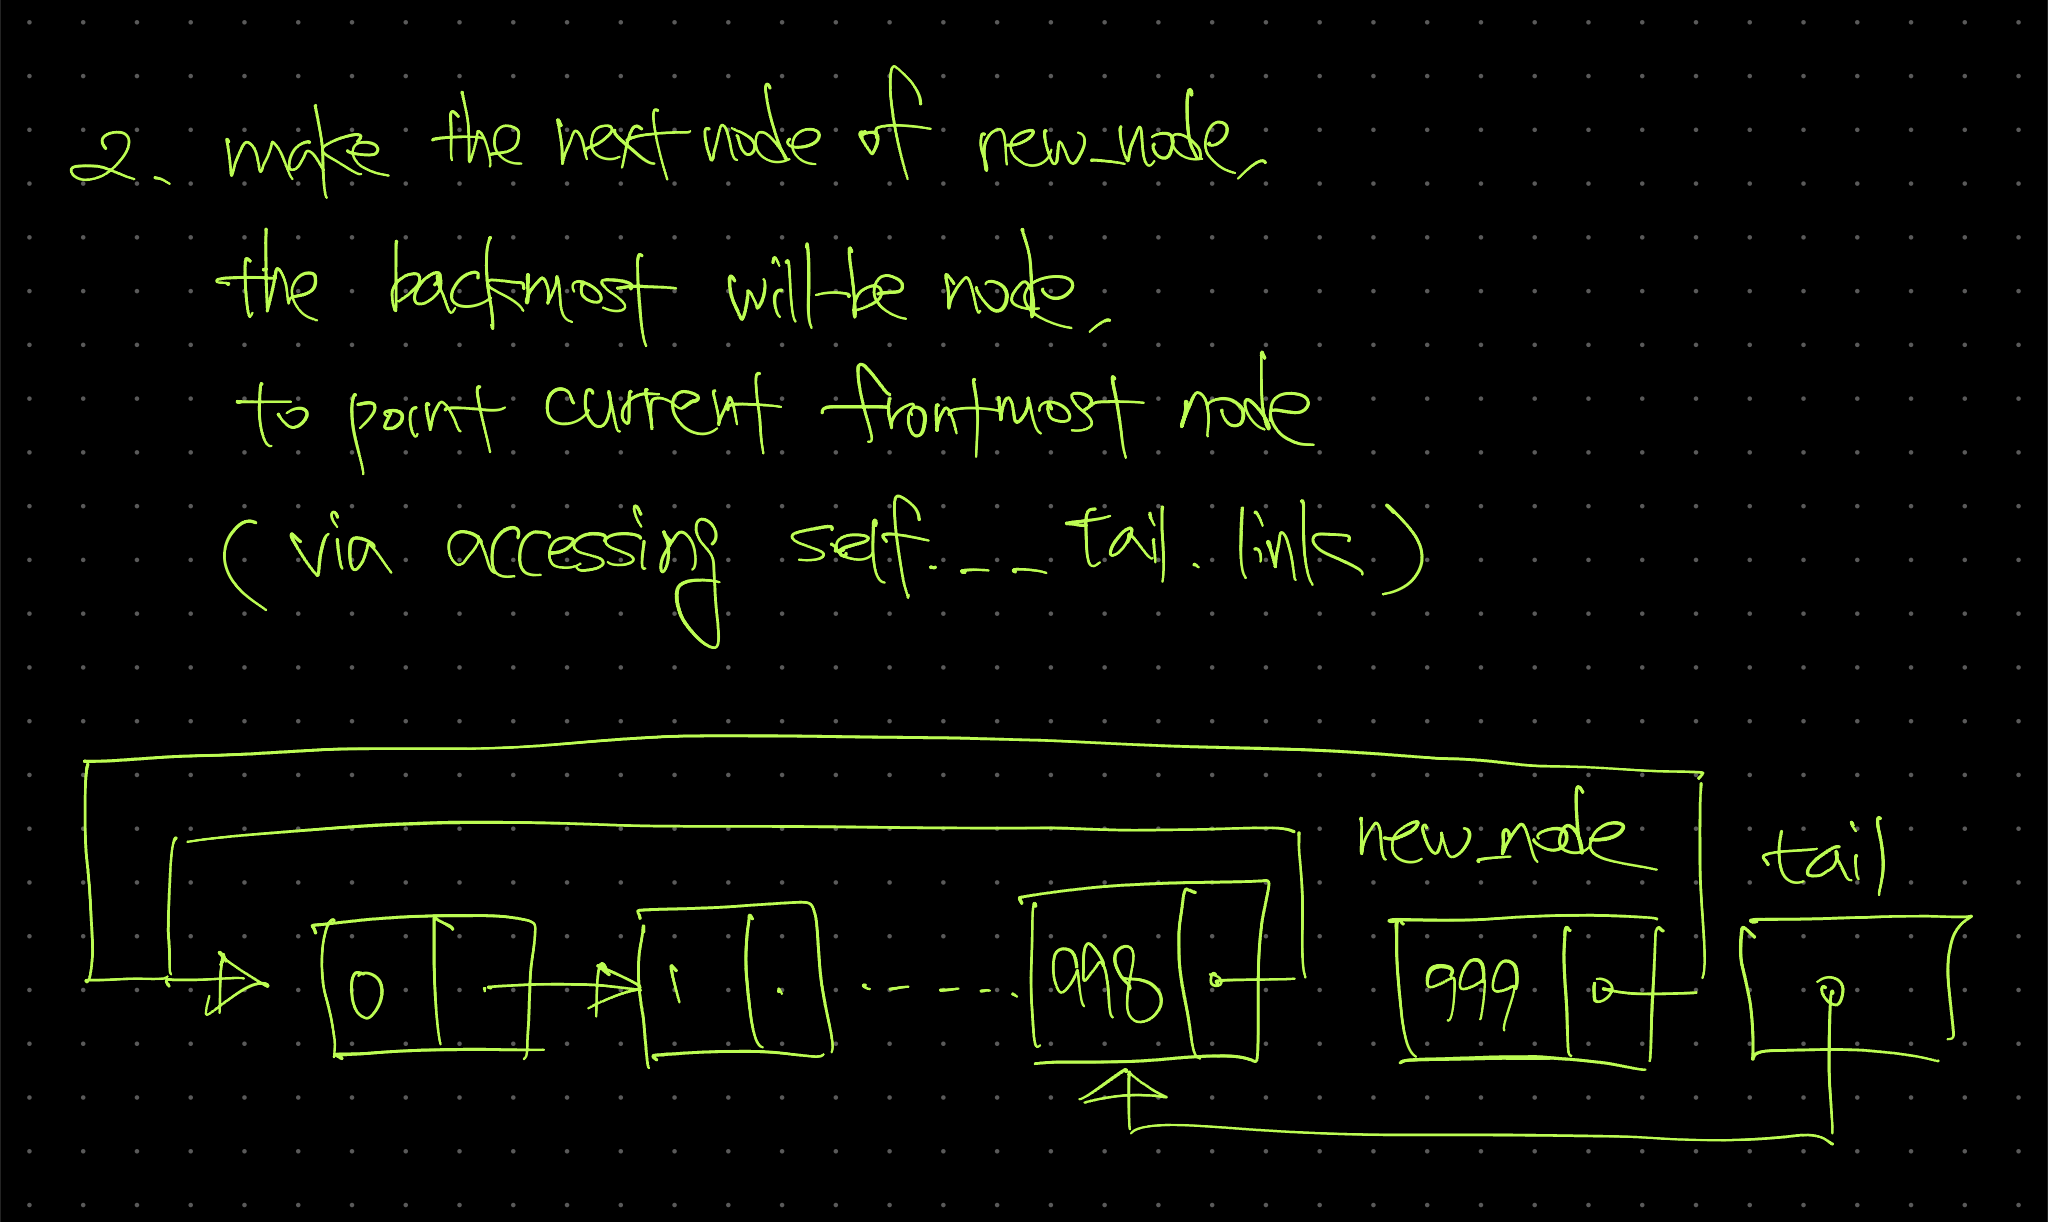 2. make the next node of new_node,
the backmost will-be node,
to point current frontmost node
(via accessing self.__tail.link)
new_node
tail
0
1
998
999